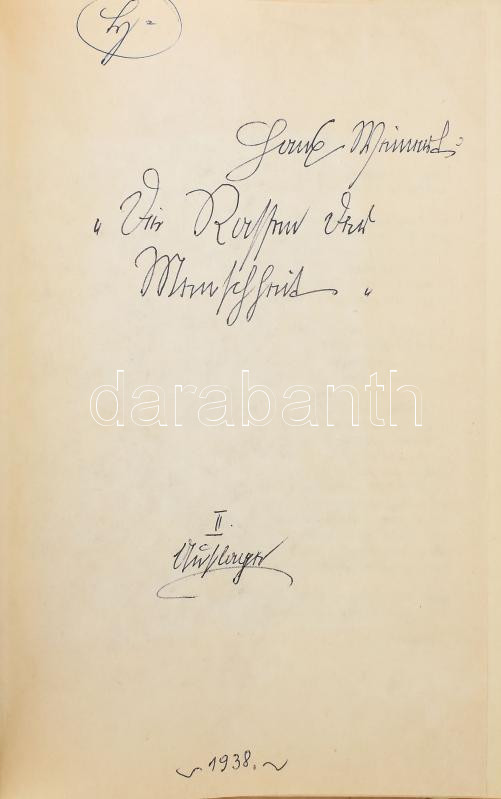 Hans Weinert:
„Die Rassen der
Menschheit."
darabanth
II.
Auflage
1938.